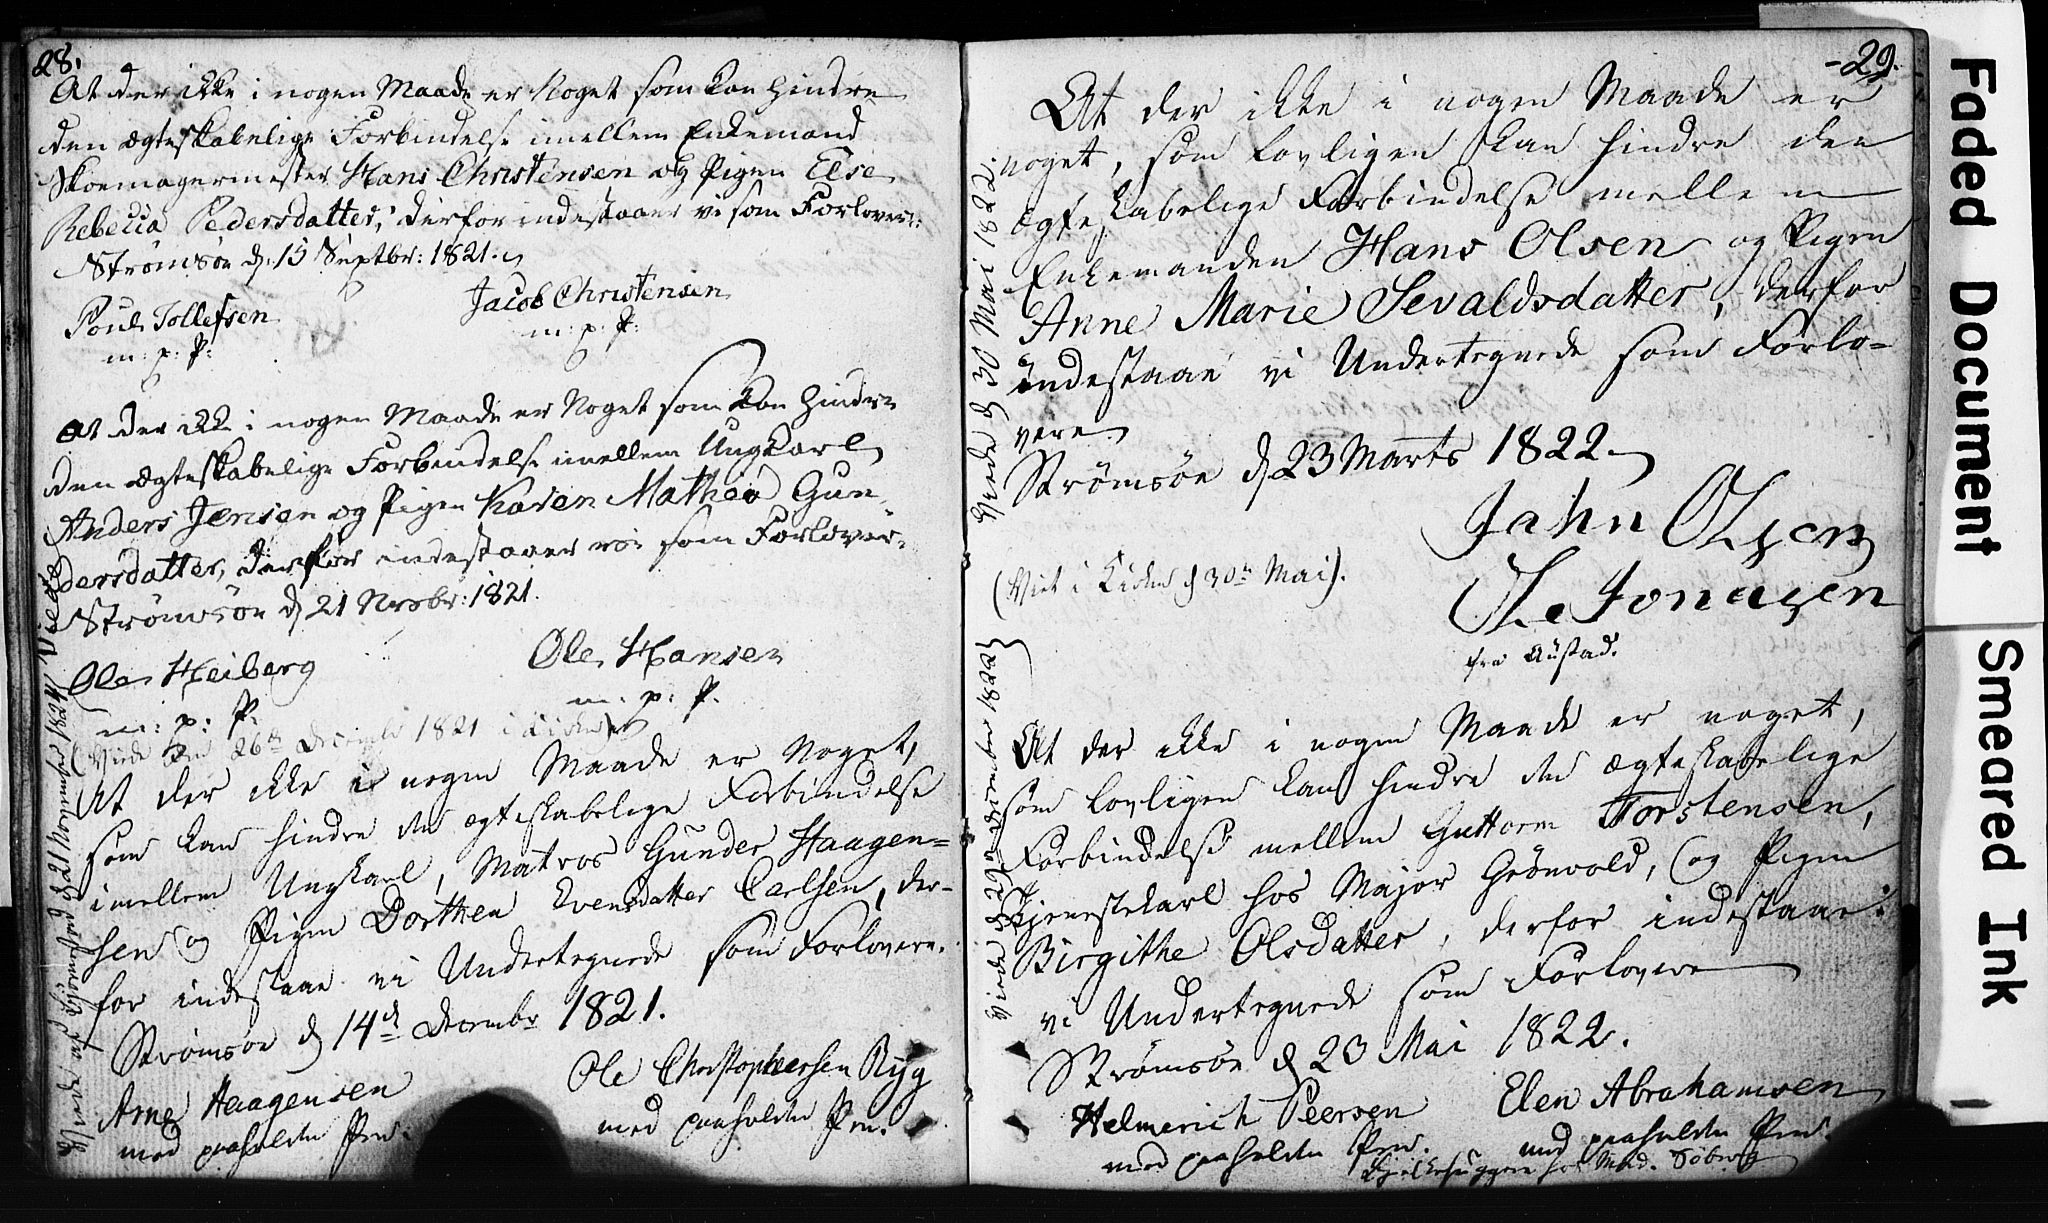 28.
At der ikke i nogen Maade er Noget som kan hindre
den ægteskabelige Forbindelse imellem Enkemand
Skoemagermester Hans Christensen og Pigen Else
Rebecca Pedersdatter, derfor indestaaer vi som Forlovere:
Strømsøe d: 15 Septbr: 1821.
Poul Tollefsen
m: p: P:
Jacob Christensen
m: p: P:
At der ikke i nogen Maade er Noget som kan hindre
den ægteskabelige Forbindelse imellem Ungkarl
Anders Jensen og Pigen Karen Mathea Gun-
dersdatter, derfor indestaaer vi som Forlover:
Strømsøe d 21 Novbr: 1821.
Ole Heiberg
m: p: P.
Ole Hansen
m: p: P.
(Viede den 26de Decembr 1821 i Kirken)
At der ikke i nogen Maade er Noget,
som kan hindre den ægteskabelige Forbindelse
imellem Ungkarl, Matros Gunder Haagen=
sen og Pigen Dorthea Evensdatter Carlsen, der-
for indestaae vi Undertegnede som Forlovere.
Strømsøe d 14d Decembr 1821.
Arne Haagensen
med paaholden Pen.
Ole Christophersen Ryg
med paaholden Pen.
Viede af Hjermstad d 21 November 1824
-29.
At der ikke i nogen Maade er
noget, som lovligen kan hindre den
ægteskabelige Forbindelse mellem
Enkemanden Hans Olsen og Pigen
Anne Marie Sevaldsdatter, derfor
indestaae vi Undertegnede som Forlo-
vere.
Strømsøe d 23 Marts 1822.
Viede d 30 Mai 1822.
Jahn Olsen
(Viet i Kirken d 30te Mai).
Ole Jonasen
fra Austad.
At der ikke i nogen Maade er noget,
som lovligen kan hindre den ægteskabelige
Forbindelse mellem Guttorm Torstensen,
Tjenestekarl hos Major Grønvold, og Pigen
Birgithe Olsdatter, derfor indestaae
vi Undertegnede som Forlovere
Strømsøe d 23 Mai 1822.
Viede d 29 December 1822
Helmerich Peersen
med paaholden Pen.
Elen Abrahamsen
med paaholden Pen.
hos Mad. Søberg
Faded Document
Smeared Ink